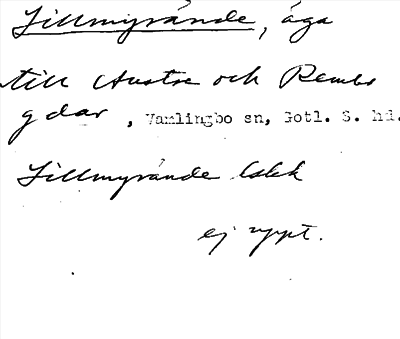 Lillmyrände, äga
till Austre och Rembs
gdar, Vamlingbo sn, Gotl. S. hd.
Lillmyrände
ej uppt.